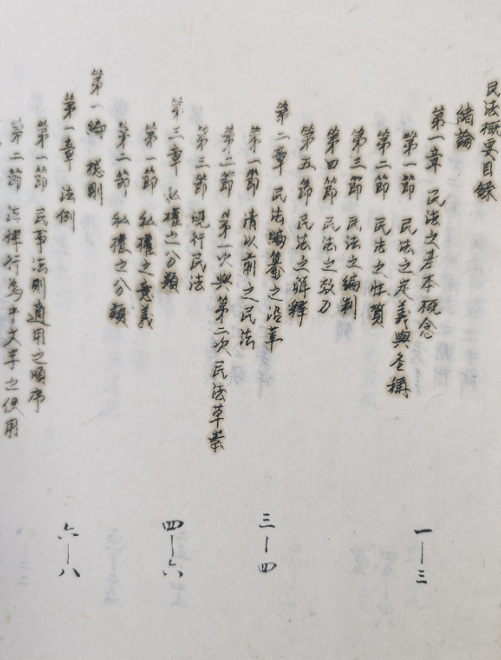 民法概要目錄
緒論
第一章 民法之基本概念 一—三
第一節 民法之定義與名稱
第二節 民法之性質
第三節 民法之編制
第四節 民法之效力
第五節 民法之解釋
第二章 民法編纂之沿革 三—四
第一節 清以前之民法
第二節 第一次與第二次民法草案
第三節 現行民法
第三章 私權之分類 四—六
第一節 私權之意義
第二節 私權之分類
第一編 總則
第一章 法例 六—八
第一節 民事法則適用之順序
第二節 法律行為中文字之使用